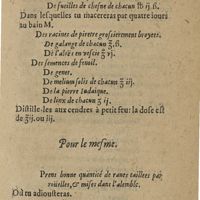 De fueilles de chesne de chacun ℔ ij. ß
Dans lesquelles tu macereras par quatre iours
au bain M.
Des racines de piretre grossierement broyees.
De galange de chacun ℥. ß.
De l'alũ
Des semences de fenoil.
De genet.
De melium solis de chacun ℥ iij
De la pierre Iudaique.
De linx de chacun ʒ ij.
Distille-les aux cendres à petit feu: la dose est
de ℥ij. ou iij.
Pour le mesme.
Prens bonne quantité de raues taillees par
rouëlles, & mises dans l'alembic.
Où tu adiousteras.